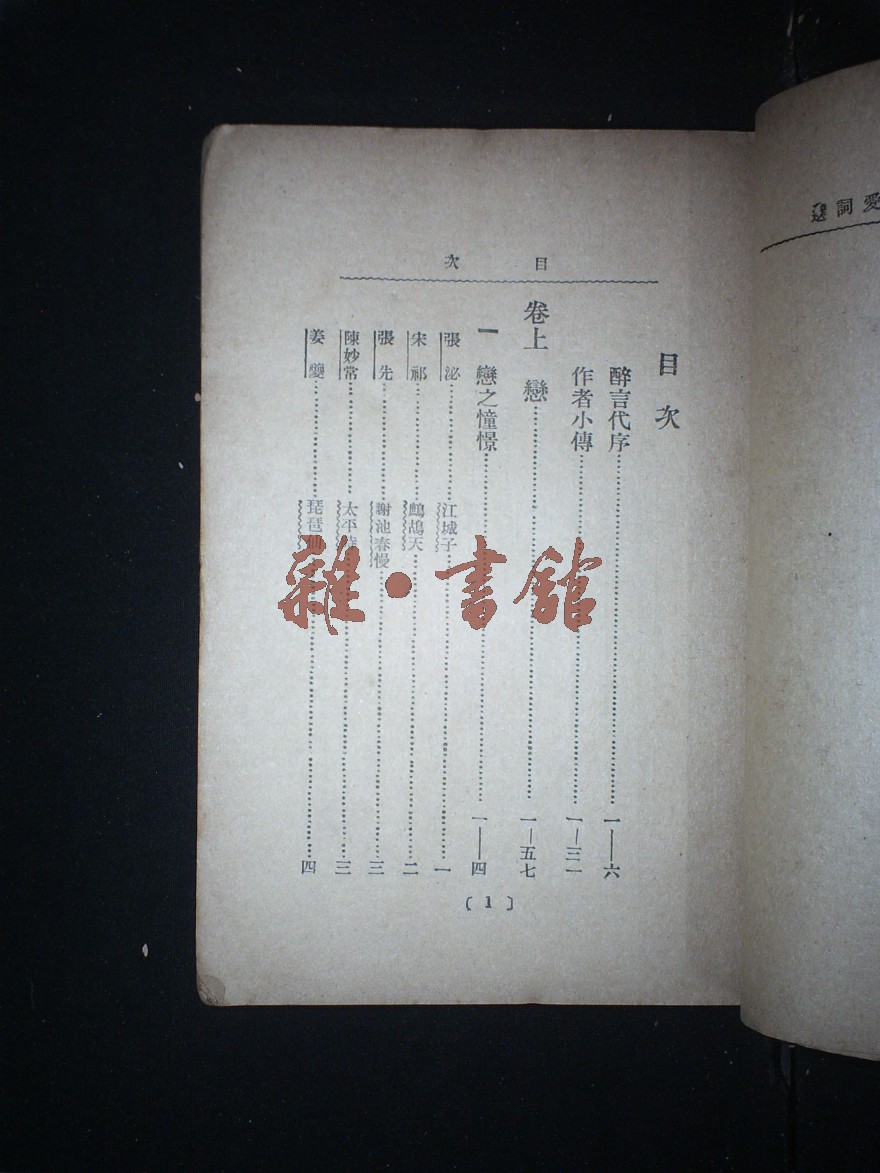 愛詞選
目次
目次
醉言代序⋯⋯一—六
作者小傳⋯⋯一—三一
卷上 戀⋯⋯一—五七
一 戀之憧憬⋯⋯一—四
張泌⋯⋯江城子⋯⋯一
宋祁⋯⋯鷓鴣天⋯⋯二
張先⋯⋯謝池春慢⋯⋯三
陳妙常⋯⋯太平時⋯⋯三
姜夔⋯⋯琵琶仙⋯⋯四
〔1〕
雜·書館